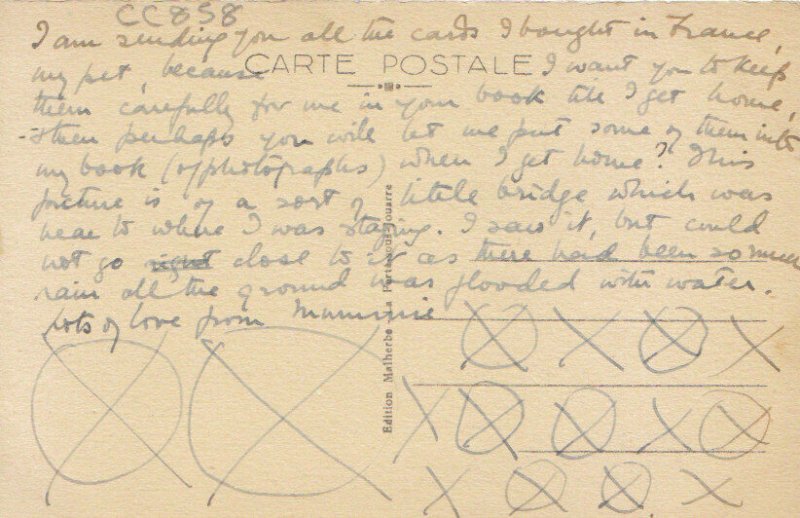 CC858
I am sending you all the cards I bought in France,
CARTE POSTALE
my pet, because I want you to keep
them carefully for me in your book till I get home,
- then perhaps you will let me put some of them into
my book (of photographs) when I get home? This
picture is of a sort of little bridge which was
near to where I was staying. I saw it, but could
not go right close to it as there had been so much
rain all the ground was flooded with water.
Lots of love from Mummie
Edition Malherbe - La Ferté-sous-Jouarre